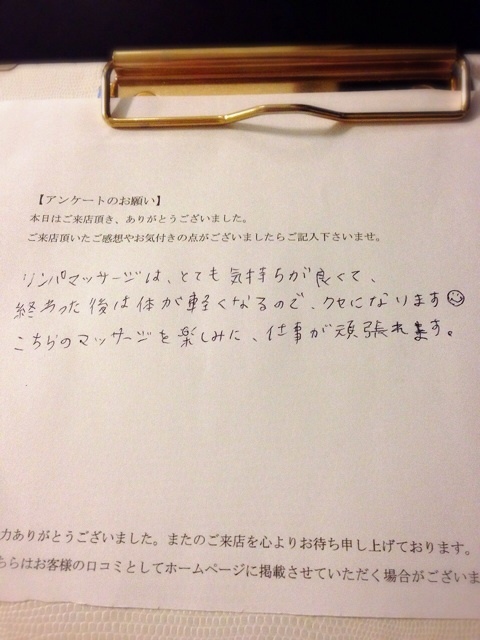 【アンケートのお願い】
本日はご来店頂き、ありがとうございました。
ご来店頂いたご感想やお気付きの点がございましたらご記入下さいませ。
リンパマッサージは、とても気持ちが良くて、
終わった後は体が軽くなるので、クセになります☺
こちらのマッサージを楽しみに、仕事が頑張れます。
力ありがとうございました。またのご来店を心よりお待ち申し上げております。
ちらはお客様の口コミとしてホームページに掲載させていただく場合がございま